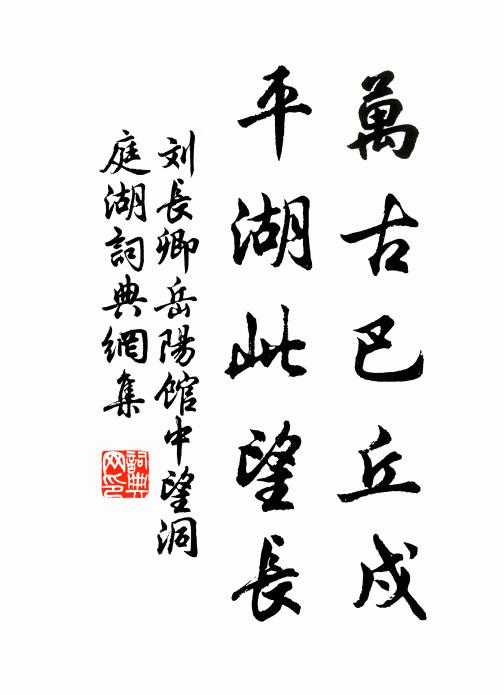 萬古巴丘戍
平湖此望長
刘長卿岳陽館中望洞
庭湖詞典網集
詞典网印